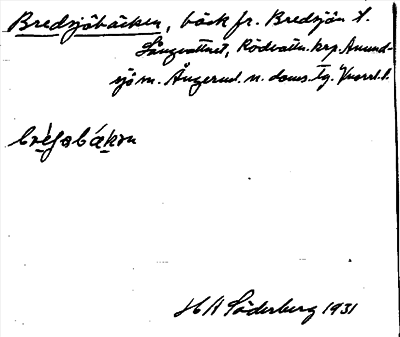 Bredsjöbäcken, bäck fr. Bredsjön t.
Långvattnet, Rödvattn. krp. Anund-
sjö sn. Ångerml. n. doms. tg. Vnorrl. l.
H A Söderberg 1931